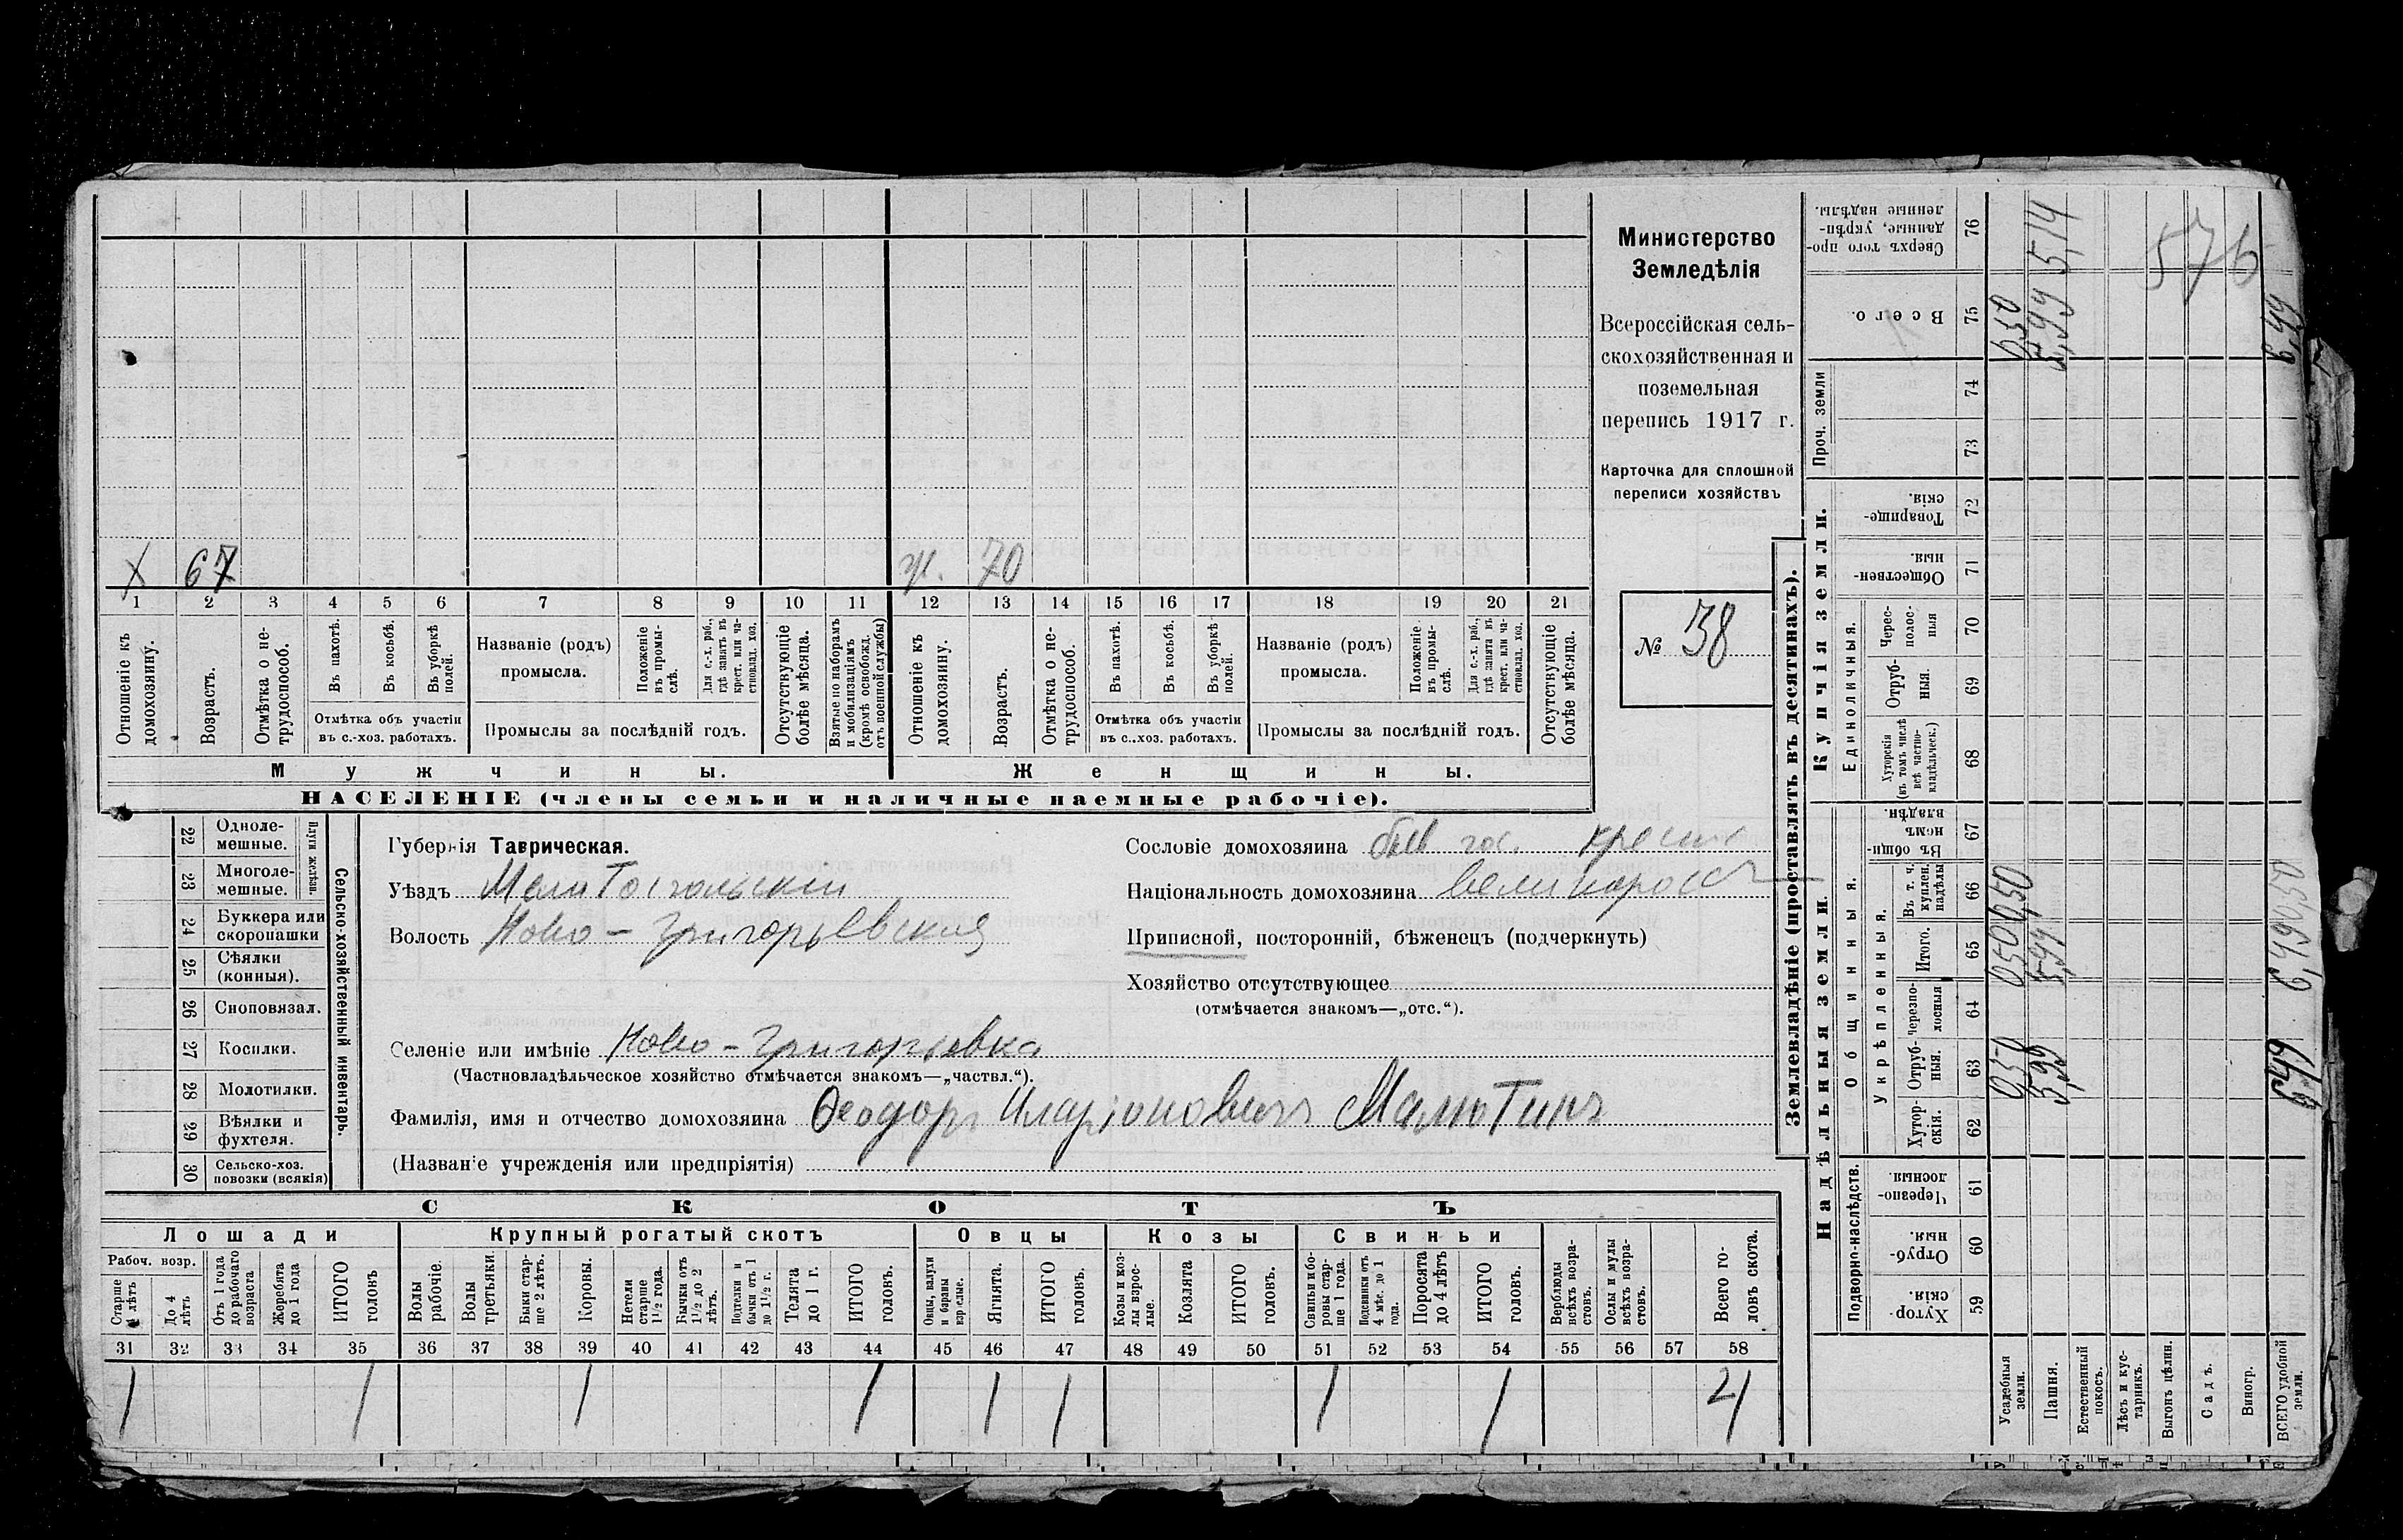 Министерство
Земледѣлія
Всероссійская сель-
скохозяйственная и
поземельная
перепись 1917 г.
Карточка для сплошной
переписи хозяйствъ
№ 38
Х 67 ж. 70
1 2 3 4 5 6 7 8 9 10 11 12 13 14 15 16 17 18 19 20 21
Отношеніе къ домохозяину.
Возрастъ.
Отмѣтка о не-трудоспособ.
Въ пахотѣ.
Въ косьбѣ.
Въ уборкѣ полей.
Отмѣтка объ участіи
въ с.-хоз. работахъ.
Названіе (родъ)
промысла.
Положеніе въ промы-слѣ.
Для с.-х. раб., гдѣ занятъ въ крест. или ча-стновлад. хоз.
Промыслы за послѣдній годъ.
Отсутствующіе болѣе мѣсяца.
Взятые по наборамъ и мобилизаціямъ (кромѣ освобожд. отъ военной службы)
Отношеніе къ домохозяину.
Возрастъ.
Отмѣтка о не-трудоспособ.
Въ пахотѣ.
Въ косьбѣ.
Въ уборкѣ полей.
Отмѣтка объ участіи
въ с..хоз. работахъ.
Названіе (родъ)
промысла.
Положеніе въ промы-слѣ.
Для с.-х. раб., гдѣ занята въ крест. или ча-стновлад. хоз.
Промыслы за послѣдній годъ.
Отсутствующіе болѣе мѣсяца.
Мужчины. Женщины.
НАСЕЛЕНІЕ (члены семьи и наличные наемные рабочіе).
22 Одноле-мешные.
23 Многоле-мешные.
Плуги желѣзн.
24 Буккера или скоропашки
25 Сѣялки (конныя).
26 Сноповязал.
27 Косилки.
28 Молотилки.
29 Вѣялки и фухтеля.
30 Сельско-хоз. повозки (всякія)
Сельско-хозяйственный инвентарь.
Губернія Таврическая.
Уѣздъ Мелитопольскій
Волость Ново-Григорьевская
Селеніе или имѣніе Ново-Григорьевка
(Частновладѣльческое хозяйство отмѣчается знакомъ—„частвл.“).
Фамилія, имя и отчество домохозяина Ѳеодоръ Иларіоновичъ Малютинъ
(Названіе учрежденія или предпріятія)
Сословіе домохозяина быв гос. крест
Національность домохозяина великоросс
Приписной, посторонній, бѣженецъ (подчеркнуть)
Хозяйство отсутствующее
(отмѣчается знакомъ—„отс.“).
СКОТЪ
Лошади Крупный рогатый скотъ Овцы Козы Свиньи
Рабоч. возр.
Старше 4 лѣтъ
До 4 лѣтъ
Отъ 1 года до рабочаго возраста
Жеребята до 1 года
ИТОГО головъ
Волы рабочіе.
Волы третьяки.
Быки стар-ше 2 лѣтъ.
Коровы.
Нетели старше 1½ года.
Бычки отъ 1½ до 2 лѣтъ.
Подтелки и бычки отъ 1 до 1½ г.
Телята до 1 г.
ИТОГО головъ.
Овцы, валухи и бараны взрослые.
Ягнята.
ИТОГО головъ.
Козы и коз-лы взрос-лые.
Козлята
ИТОГО головъ.
Свиньи и бо-ровы стар-ше 1 года.
Подсвинки отъ 4 мѣс. до 1 года.
Поросята до 4 лѣтъ
ИТОГО головъ.
Верблюды всѣхъ возра-стовъ.
Ослы и мулы всѣхъ возра-стовъ.
Всего го-ловъ скота.
31 32 33 34 35 36 37 38 39 40 41 42 43 44 45 46 47 48 49 50 51 52 53 54 55 56 57 58
1 1 1 1 1 1 1 1 4
Землевладѣніе (проставлять въ десятинахъ).
Надѣльныя земли. Купчія земли.
Подворно-наслѣдств. Общинныя. Единоличныя. Проч. земли
Укрѣпленныя.
Хутор-скія. 59
Отруб-ныя. 60
Черезпо-лосныя 61
Хутор-скія. 62
Отруб-ныя. 63
Черезпо-лосныя 64
Итого. 65
Въ т. ч. куплен. надѣлы 66
Въ общи-номъ владѣн. 67
Хуторскія (въ томъ числѣ всѣ частно-владѣльческ.) 68
Отруб-ныя. 69
Черес-полос-ныя 70
Обществен-ныя. 71
Товарище-скія. 72
73
74
Всего. 75
Сверхъ того про-данные, укрѣп-ленные надѣлы. 76
Усадебныя земли. 0,50 0,50 0,50 0,50
Пашня. 5,99 5,99 5,99 5,14
Естественный покосъ.
Лѣсъ и кус-тарникъ.
Выгонъ цѣлин.
Садъ.
Виногр.
ВСЕГО удобной земли. 6,49 6,49 0,50 6,49
576